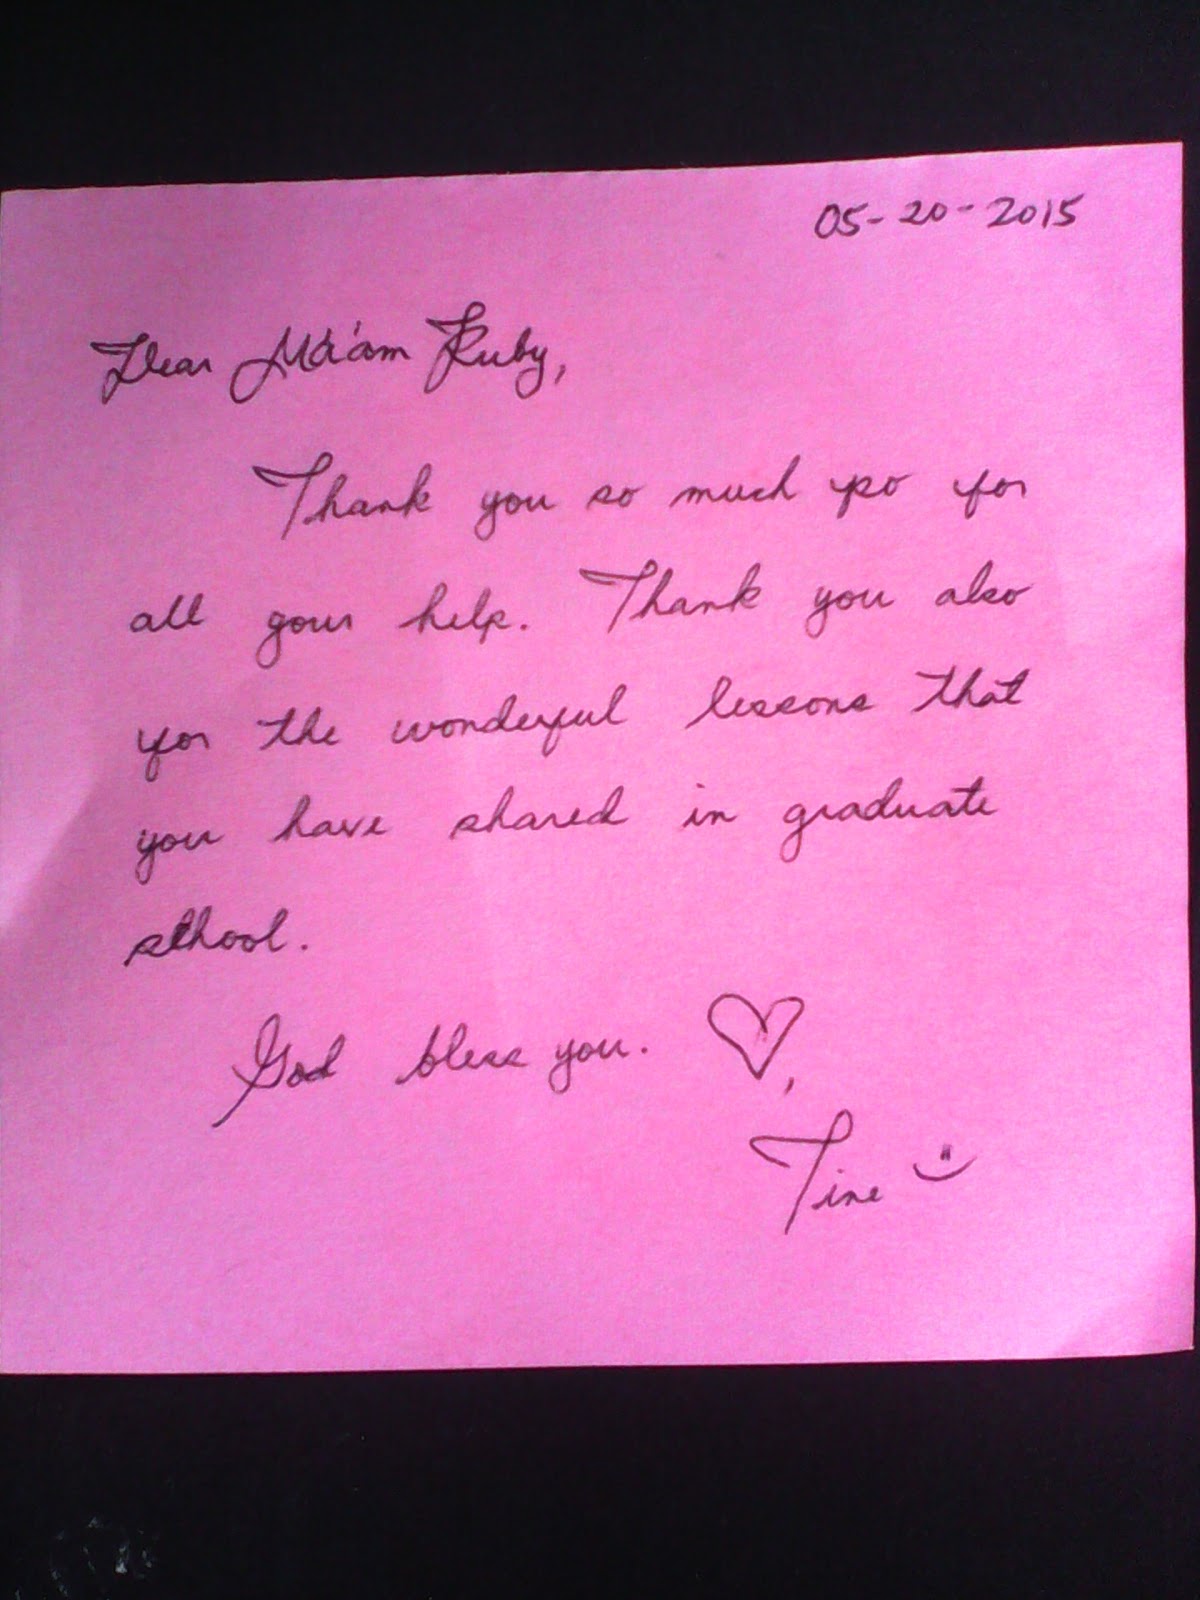 05-20-2015
Dear Ma'am Ruby,
Thank you so much po for
all your help. Thank you also
for the wonderful lessons that
you have shared in graduate
school.
God bless you. ♡,
Tine :)